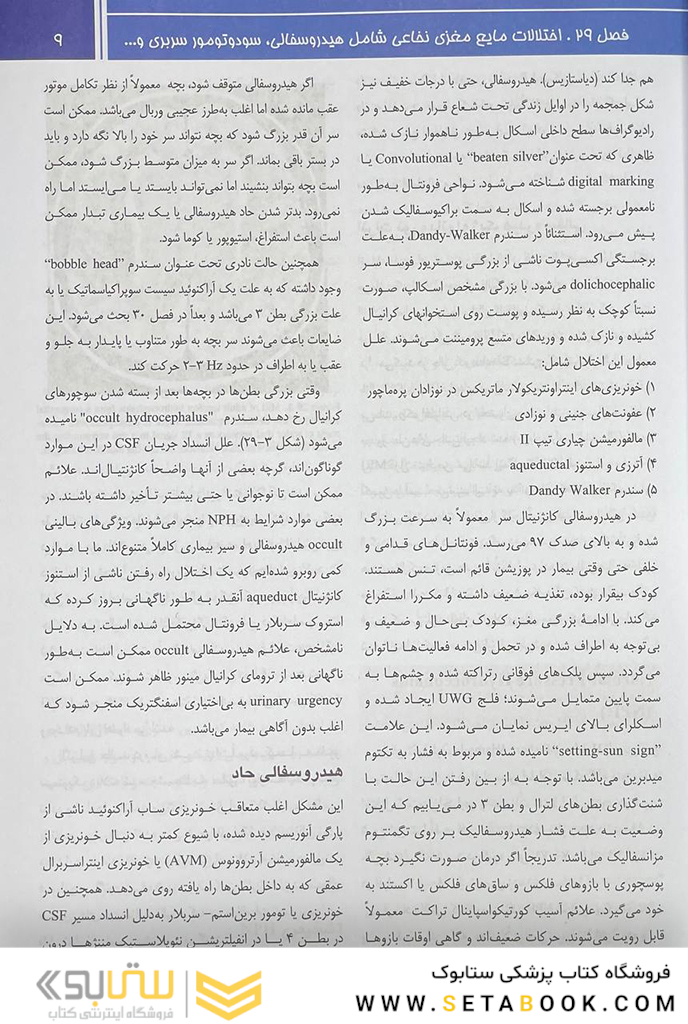 فصل ۲۹ . اختلالات مایع مغزی نخاعی شامل هیدروسفالی، سودوتومور سربری و... ۹
هم جدا کند (دیاستازیس). هیدروسفالی، حتی با درجات خفیف نیز
شکل جمجمه را در اوایل زندگی تحت شعاع قرار می‌دهد و در
رادیوگراف‌ها سطح داخلی اسکال به‌طور ناهموار نازک شده،
ظاهری که تحت عنوان”beaten silver“ یا Convolutional یا
digital marking شناخته می‌شود. نواحی فرونتال به‌طور
نامعمولی برجسته شده و اسکال به سمت براکیوسفالیک شدن
پیش می‌رود. استثنائاً در سندرم Dandy-Walker، به‌علت
برجستگی اکسی‌پوت ناشی از بزرگی پوستریور فوسا، سر
dolichocephalic می‌شود. با بزرگی مشخص اسکالپ، صورت
نسبتاً کوچک به نظر رسیده و پوست روی استخوانهای کرانیال
کشیده و نازک شده و وریدهای متسع پرومیننت می‌شوند. علل
معمول این اختلال شامل:
۱) خونریزی‌های اینتراونتریکولار ماتریکس در نوزادان پره‌ماچور
۲) عفونت‌های جنینی و نوزادی
۳) مالفورمیشن چیاری تیپ II
۴) آترزی و استنوز aqueductal
۵) سندرم Dandy Walker
در هیدروسفالی کانژنیتال سر معمولاً به سرعت بزرگ
شده و به بالای صدک ۹۷ می‌رسد. فونتانل‌های قدامی و
خلفی حتی وقتی بیمار در پوزیشن قائم است، تنس هستند.
کودک بیقرار بوده، تغذیه ضعیف داشته و مکررا استفراغ
می‌کند. با ادامهٔ بزرگی مغز، کودک بی‌حال و ضعیف و
بی‌توجه به اطراف شده و در تحمل و ادامه فعالیت‌ها ناتوان
می‌گردد. سپس پلک‌های فوقانی رتراکته شده و چشم‌ها به
سمت پایین متمایل می‌شوند؛ فلج UWG ایجاد شده و
اسکلرای بالای ایریس نمایان می‌شود. این علامت
”setting-sun sign“ نامیده شده و مربوط به فشار به تکتوم
میدبرین می‌باشد. با توجه به از بین رفتن این حالت با
شنت‌گذاری بطن‌های لترال و بطن ۳ در می‌یابیم که این
وضعیت به علت فشار هیدروسفالیک بر روی تگمنتوم
مزانسفالیک می‌باشد. تدریجاً اگر درمان صورت نگیرد بچه
پوسچوری با بازوهای فلکس و ساق‌های فلکس یا اکستند به
خود می‌گیرد. علائم آسیب کورتیکواسپاینال تراکت معمولاً
قابل رویت می‌شوند. حرکات ضعیف‌اند و گاهی اوقات بازوها
اگر هیدروسفالی متوقف شود، بچه معمولاً از نظر تکامل موتور
عقب مانده شده اما اغلب به‌طرز عجیبی وربال می‌باشد. ممکن است
سر آن قدر بزرگ شود که بچه نتواند سر خود را بالا نگه دارد و باید
در بستر باقی بماند. اگر سر به میزان متوسط بزرگ شود، ممکن
است بچه بتواند بنشیند اما نمی‌تواند بایستد یا می‌ایستد اما راه
نمی‌رود. بدتر شدن حاد هیدروسفالی یا یک بیماری تبدار ممکن
است باعث استفراغ، استیوپور یا کوما شود.
همچنین حالت نادری تحت عنوان سندرم ”bobble head“
وجود داشته که به علت یک آراکنوئید سیست سوپراکیاسماتیک یا به
علت بزرگی بطن ۳ می‌باشد و بعداً در فصل ۳۰ بحث می‌شود. این
ضایعات باعث می‌شوند سر بچه به طور متناوب یا پایدار به جلو و
عقب یا به اطراف در حدود ۲-۳ Hz حرکت کند.
وقتی بزرگی بطن‌ها در بچه‌ها بعد از بسته شدن سوچورهای
کرانیال رخ دهد، سندرم "occult hydrocephalus" نامیده
می‌شود (شکل ۳-۲۹). علل انسداد جریان CSF در این موارد
گوناگون‌اند، گرچه بعضی از آنها واضحاً کانژنتیال‌اند. علائم
ممکن است تا نوجوانی یا حتی بیشتر تأخیر داشته باشند. در
بعضی موارد شرایط به NPH منجر می‌شوند. ویژگی‌های بالینی
occult هیدروسفالی و سیر بیماری کاملاً متنوع‌اند. ما با موارد
کمی روبرو شده‌ایم که یک اختلال راه رفتن ناشی از استنوز
کانژنیتال aqueduct آنقدر به طور ناگهانی بروز کرده که
استروک سربلار یا فرونتال محتمل شده است. به دلایل
نامشخص، علائم هیدروسفالی occult ممکن است به‌طور
ناگهانی بعد از ترومای کرانیال مینور ظاهر شوند. ممکن است
urinary urgency به بی‌اختیاری اسفنگتریک منجر شود که
اغلب بدون آگاهی بیمار می‌باشد.
هیدروسفالی حاد
این مشکل اغلب متعاقب خونریزی ساب آراکنوئید ناشی از
پارگی آنوریسم دیده شده، با شیوع کمتر به دنبال خونریزی از
یک مالفورمیشن آرتروونوس (AVM) یا خونریزی اینتراسربرال
عمقی که به داخل بطن‌ها راه یافته روی می‌دهد. همچنین در
خونریزی یا تومور برین‌استم- سربلار به‌دلیل انسداد مسیر CSF
در بطن ۴ یا در انفیلتریشن نئوپلاستیک مننژها درون
فروشگاه کتاب پزشکی ستابوک
WWW.SETABOOK.COM
ستابوک
فروشگاه اینترنتی کتاب